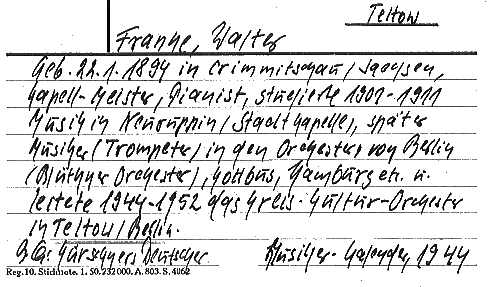 Teltow
Franke, Walter
Geb. 22.1.1894 in Crimmitschau/Sachsen,
Kapell-Meister, Pianist, studierte 1907-1911
Musik in Neuruppin (Stadtkapelle), später
Musiker (Trompeter) in den Orchestern von Berlin
(Blüthner Orchester), Cottbus, Hamburg etc. u.
leitete 1944-1952 das Kreis-Kultur-Orchester
in Teltow/Berlin.
Kürschners Deutscher Musiker-Kalender, 1944
Reg. 10. Stichnote. 1. 50. 232000. A. 803. S. 4062